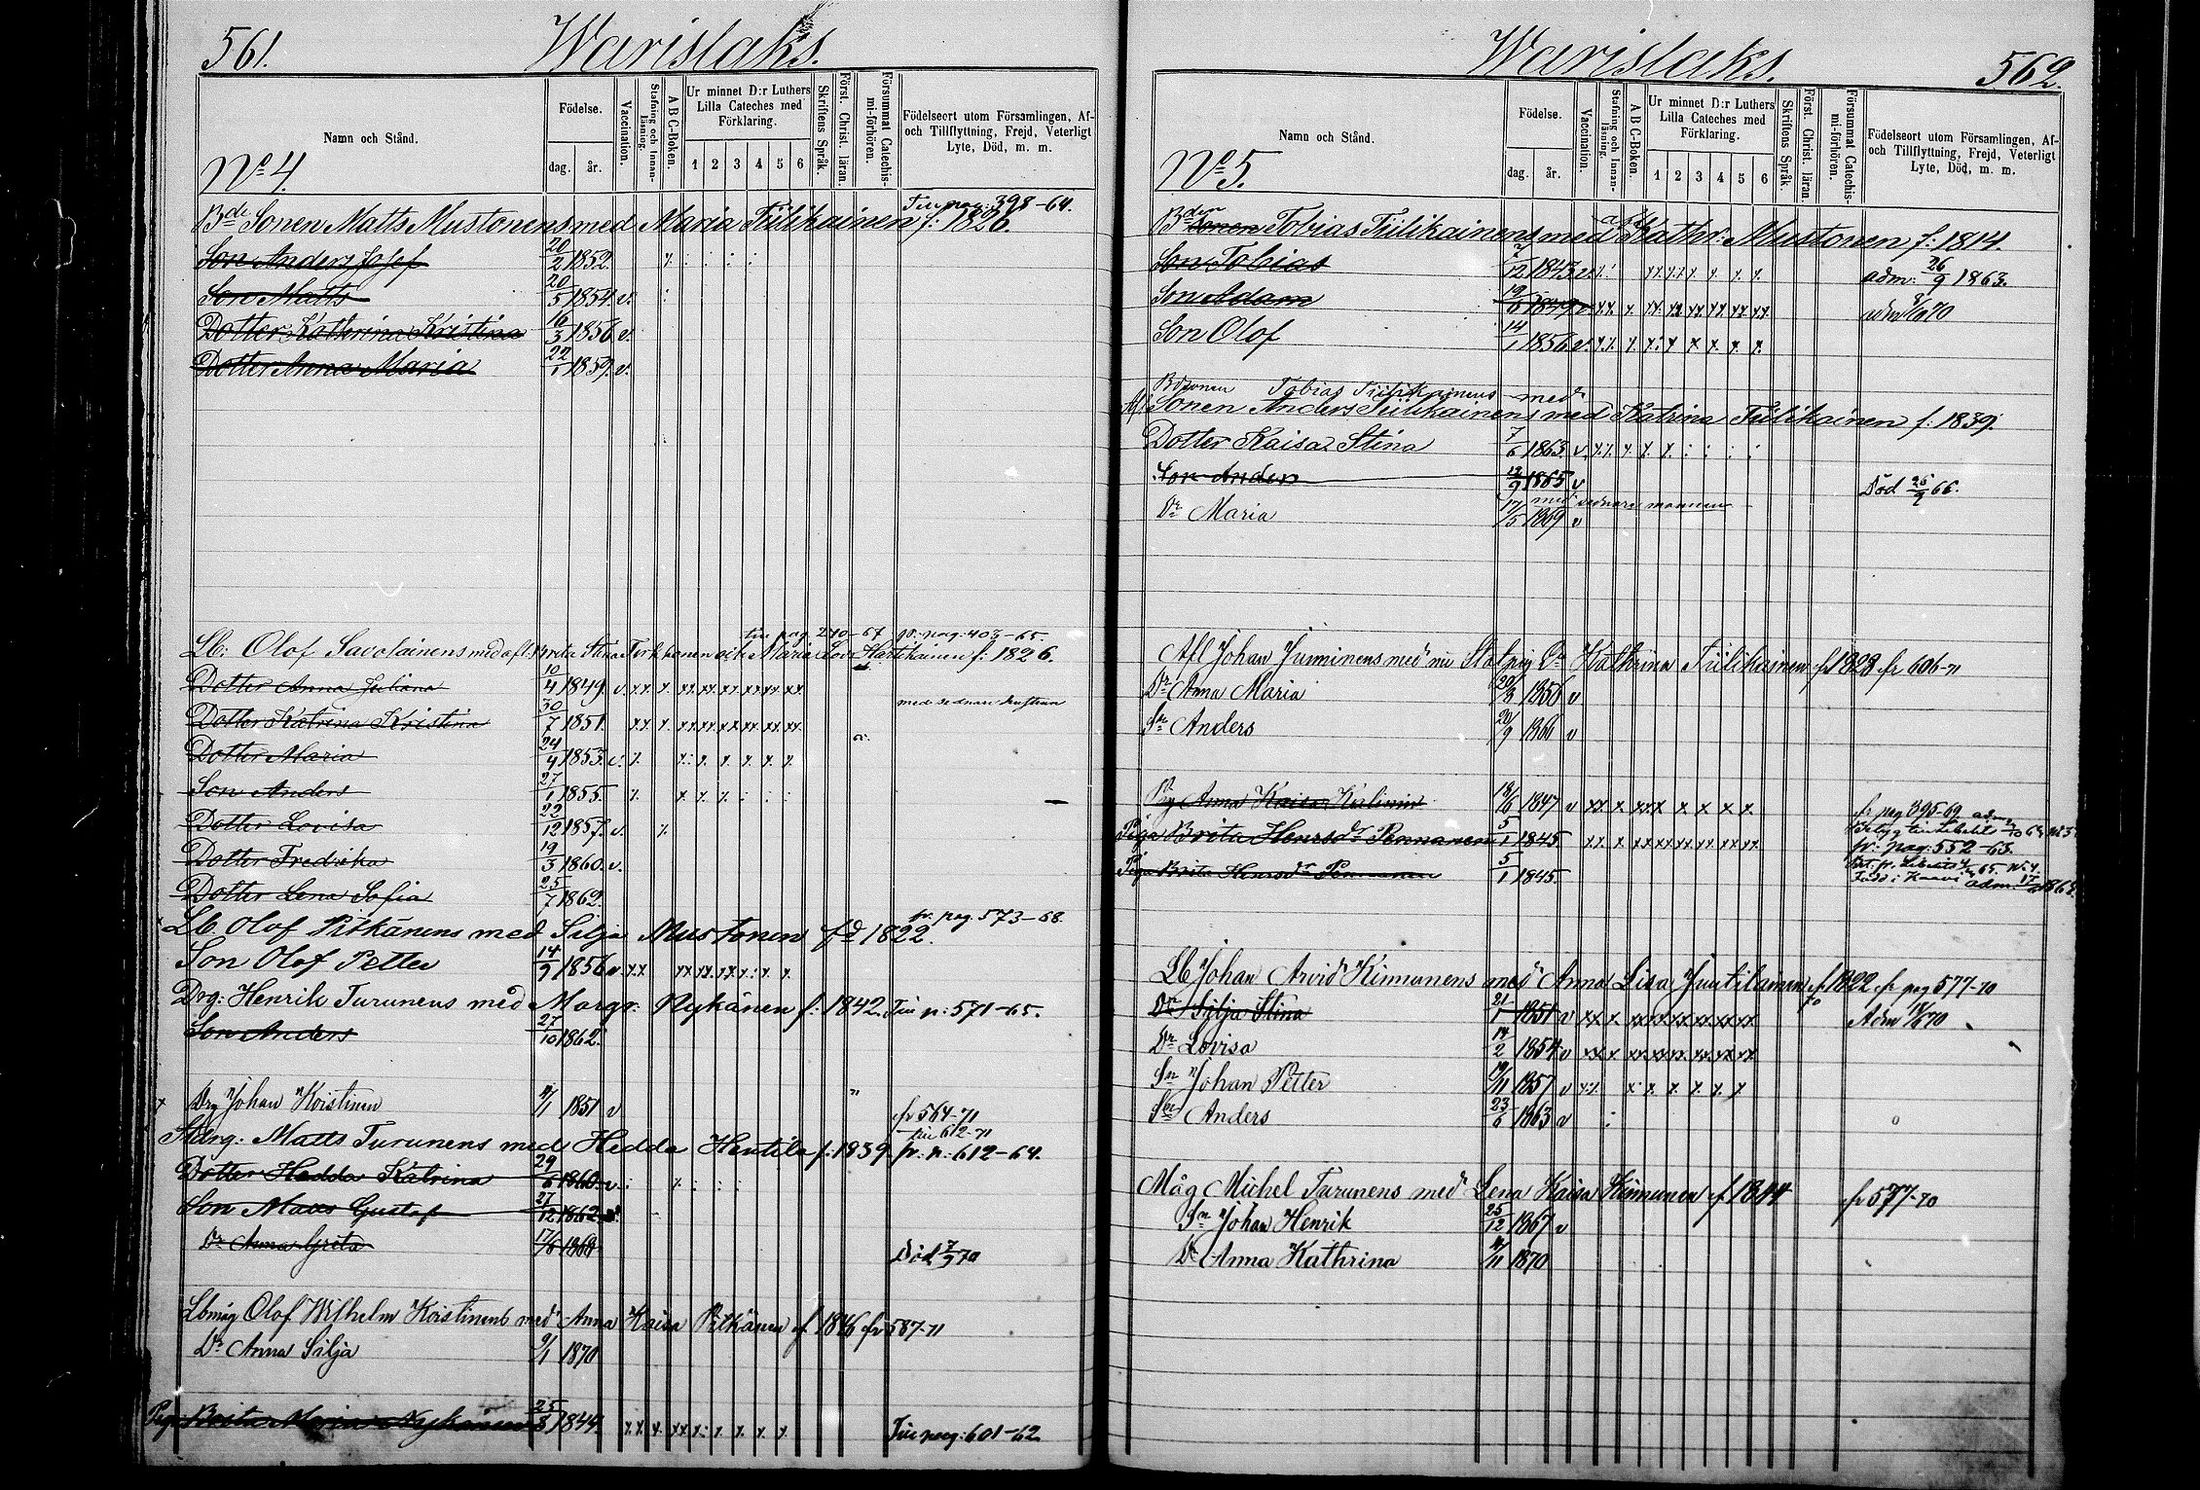 561.
Warislaks.
Namn och Stånd.
Födelse.
dag.
år.
Vaccination.
Stafning och Innan-läsning.
A B C-Boken.
Ur minnet D:r Luthers Lilla Cateches med Förklaring.
1 2 3 4 5 6
Skriftens Språk.
Först. Christ. läran.
Försummat Catechis-mi-förhören.
Födelseort utom Församlingen, Af- och Tillflyttning, Frejd, Veterligt Lyte, Död, m. m.
No 4.
Till pag: 398-64.
Bde Sonen Matts Mustonens med Maria Tiilikainen f: 1826.
Son Anders Josef 20/2 1852.
Son Matts 20/5 1854 v.
Dotter Kathrina Kristina 16/3 1856 v.
Dotter Anna Maria 22/1 1859. v.
till pag 210-67 fr: pag: 403-65.
Lb: Olof Savolainens med afl: Brita Stina Torkkonen och Maria Lov: Hartikainen f: 1826.
Dotter Anna Juliana 10/4 1849 v.
med sednare hustrun
Dotter Katrina Kristina 30/7 1851.
Dotter Maria 24/4 1853. v.
Son Anders 27/1 1855.
Dotter Lovisa 22/12 1857. v.
Dotter Fredrika 19/3 1860. v.
Dotter Lena Sofia 25/7 1862.
fr. pag. 573-68.
Lb. Olof Pitkänens med Silja Mustonen fd 1822.
Son Olof Petter 14/9 1856 v.
Drg: Henrik Turunens med Margr: Nykänen f: 1842. Till p: 571-65.
Son Anders 27/10 1862.
Drg Johan Koistinen 11/1 1851 v fr 564-71
till 612-71
Stdrg: Matts Turunens med Hedda Hentilä f: 1839. fr: p: 612-64.
Dotter Hedda Katrina 29/6 1860. v.
Son Matts Gustaf 27/12 1862
Dr Anna Greta 17/6 1868 Död 7/9 70
Lbmåg Olof Wilhelm Koistinens med Anna Kaisa Pitkänen f 1846 fr 587-71
Dr Anna Silja 9/1 1870
Piga Maria Nykänen 25/3 1844. Till pag: 601-62

Warislaks.
562.
Namn och Stånd.
Födelse.
dag.
år.
Vaccination.
Stafning och Innan-läsning.
A B C-Boken.
Ur minnet D:r Luthers Lilla Cateches med Förklaring.
1 2 3 4 5 6
Skriftens Språk.
Först. Christ. läran.
Försummat Catechis-mi-förhören.
Födelseort utom Församlingen, Af- och Tillflyttning, Frejd, Veterligt Lyte, Död, m. m.
No 5.
Bden Sonen Tobias Tiilikainens med afl Kathr: Mustonen f: 1814.
Son Tobias 7/12 1843 v adm: 26/9 1863.
Son Adam 19/6 1849 v adm 70
Son Olof 14/1 1856 v.
Bdsonen Tobias Tiilikainens med
Afl Sonen Anders Tiilikainens med Katrina Tiilikainen f: 1839.
Dotter Kaisa Stina 7/6 1863. v.
Son Anders 12/9 1865 v Död 25/2 66.
med sednare mannen
Dr Maria 17/5 1869 v
Afl Johan Jumminens med nu Dr Kathrina Tiilikainen f 1828 fr 606-71
Dr Anna Maria 20/3 1856 v
Sn Anders 20/9 1860 v
Pig Anna Kaisa 18/6 1847 v fr pag 395-69
Piga Brita Henrsdr Pennanen 5/1 1845.
fr: pag: 552-63.
Piga Brita Henrsdr Pennanen 5/1 1845.
Född i Kaavi adm
Lb Johan Arvid Kinnunens med Anna Lisa Juutilainen f 1822 fr pag 577-70
Dr Silja Stina 21/1 1851 v Adm 70
Dr Lovisa 14/2 1854 v
Sn Johan Petter 19/11 1857 v
Sn Anders 23/6 1863 v
Måg Michel Turunens med Lena Kaisa Kinnunen f 1844 fr 577-70
Sn Johan Henrik 25/12 1867 v
Dr Anna Kathrina 11/11 1870